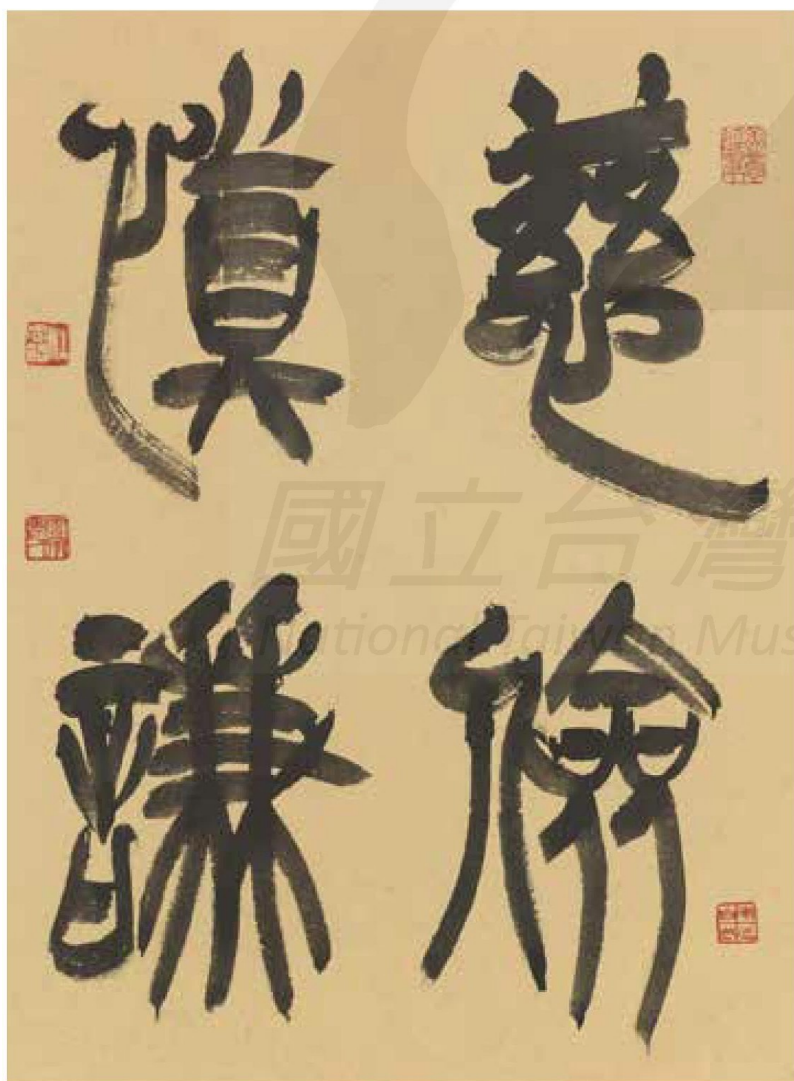 慈儉
慎謙
國立台灣
National Taiwan Mus